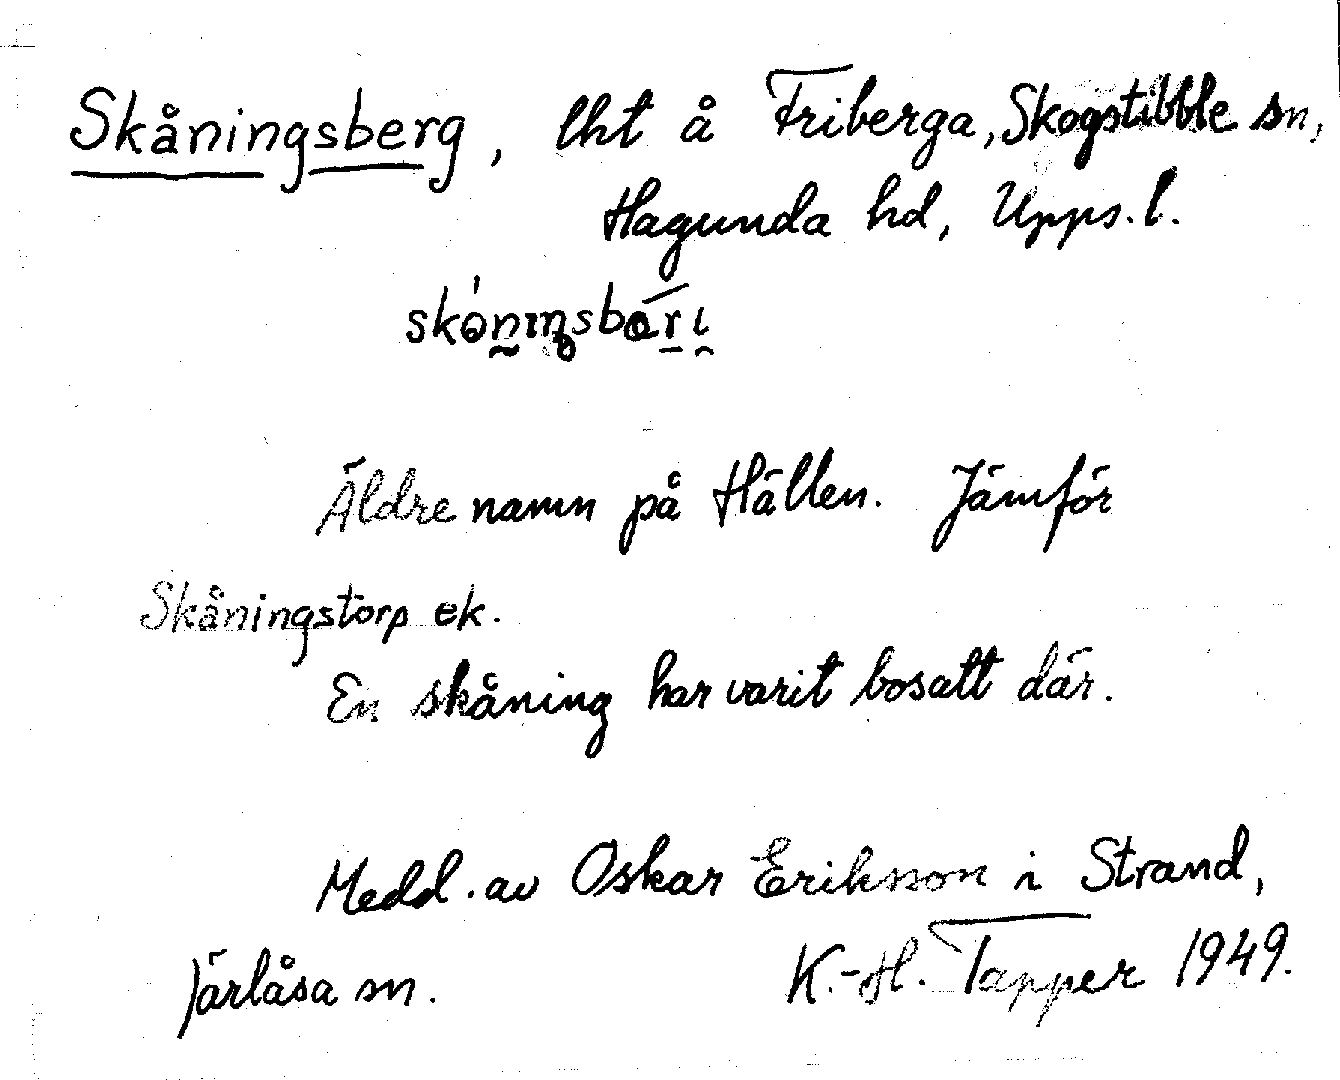 Skåningsberg, lht å Friberga, Skogstibble sn,
Hagunda hd, Upps. l.
Äldre namn på Hällen. Jämför
Skåningstorp ek.
En skåning har varit bosatt där.
Medd. av Oskar Eriksson i Strand,
Järlåsa sn. K.-H. Tapper 1949.